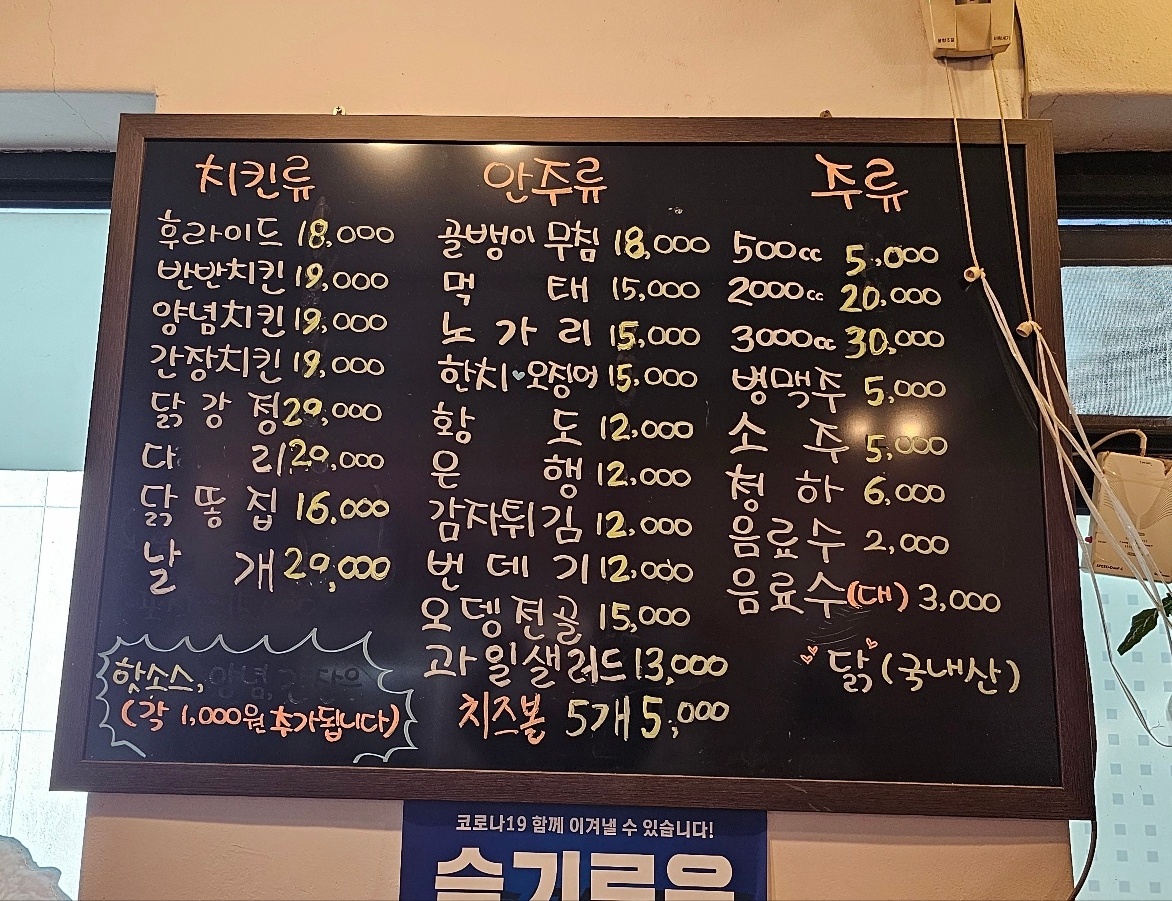 치킨류
후라이드 18,000
반반치킨 19,000
양념치킨 19,000
간장치킨 19,000
닭강정 29,000
다리 29,000
닭똥집 16,000
날개 29,000
핫소스,
(각 1,000원 추가됩니다)
안주류
골뱅이무침 18,000
먹태 15,000
노가리 15,000
한치♥오징어 15,000
황도 12,000
은행 12,000
감자튀김 12,000
번데기 12,000
오뎅전골 15,000
과일샐러드 13,000
치즈볼 5개 5,000
주류
500cc 5,000
2000cc 20,000
3000cc 30,000
병맥주 5,000
소주 5,000
청하 6,000
음료수 2,000
음료수(대) 3,000
닭(국내산)
코로나19 함께 이겨낼 수 있습니다!
슬기로운